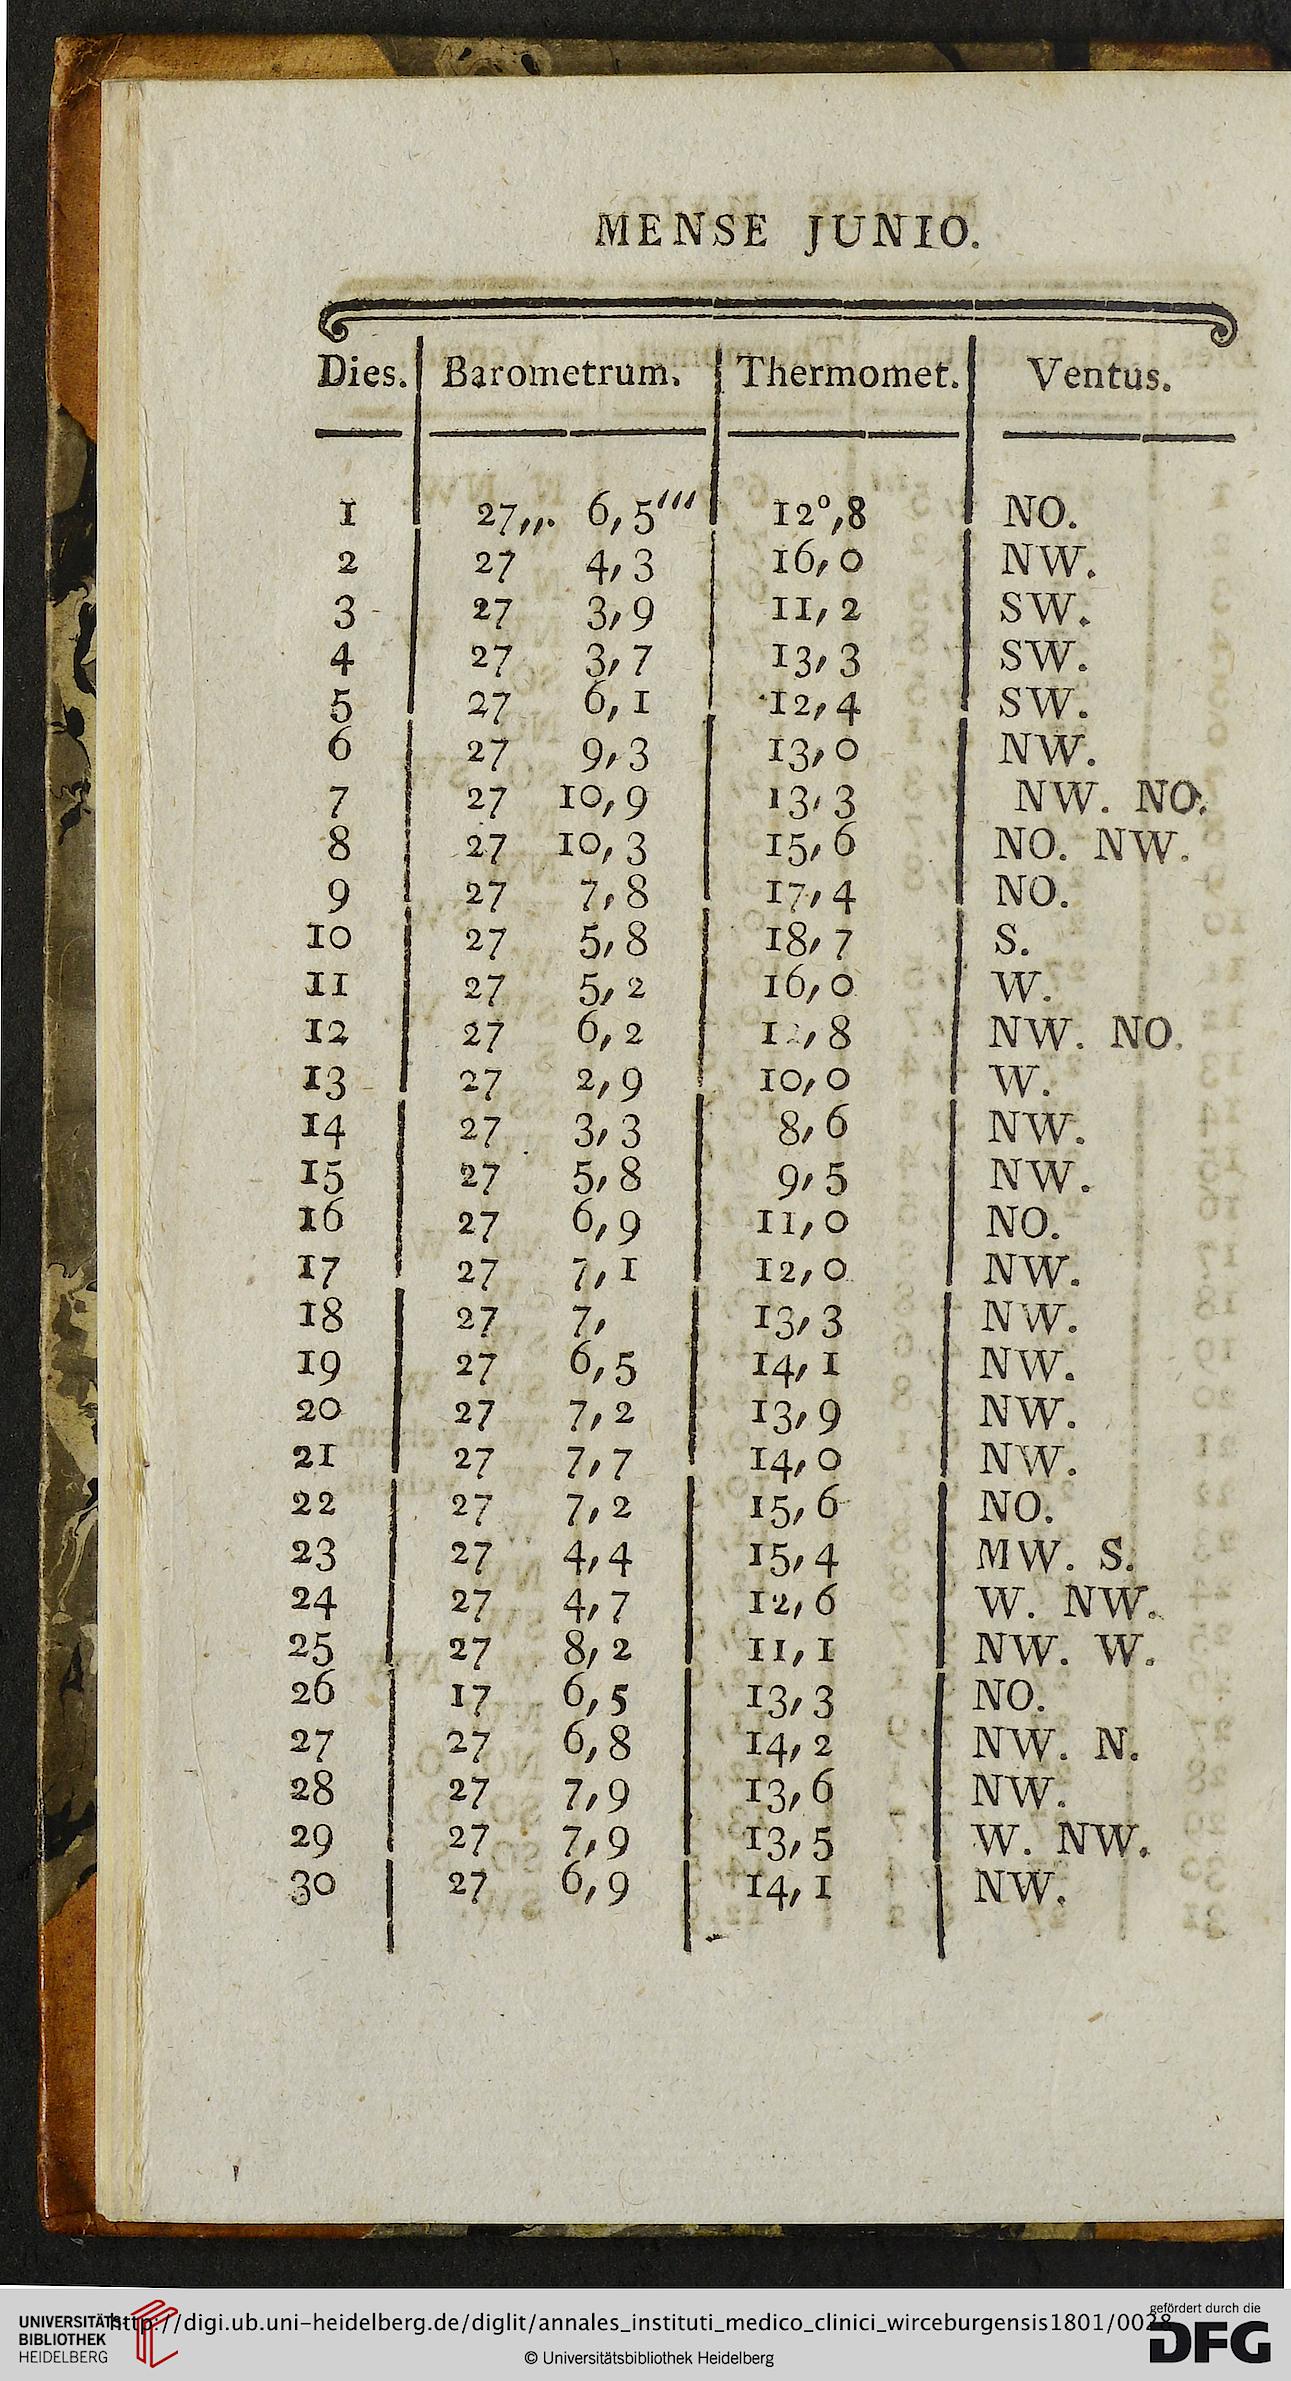 MENSE JUNIO.
Dies. Barometrum. Thermomet. Ventus.
1 27,,,. 6,5''' 12°,8 NO.
2 27 4,3 16,0 NW.
3 27 3,9 11,2 SW.
4 27 3,7 13,3 SW.
5 27 6,1 12,4 SW.
6 27 9,3 13,0 NW.
7 27 10,9 13,3 NW. NO.
8 27 10,3 15,6 NO. NW.
9 27 7,8 17,4 NO.
10 27 5,8 18,7 S.
11 27 5,2 16,0 W.
12 27 6,2 NW. NO.
13 27 2,9 10,0 W.
14 27 3,3 8,6 NW.
15 27 5,8 9,5 NW.
16 27 6,9 11,0 NO.
17 27 7,1 12,0 NW.
18 27 7, 13,3 NW.
19 27 6,5 14,1 NW.
20 27 7,2 13,9 NW.
21 27 7,7 14,0 NW.
22 27 7,2 15,6 NO.
23 27 4,4 15,4 MW. S.
24 27 4,7 12,6 W. NW.
25 27 8,2 11,1 NW. W.
26 17 6,5 13,3 NO.
27 27 6,8 14,2 NW. N.
28 27 7,9 13,6 NW.
29 27 7,9 13,5 W. NW.
30 27 6,9 14,1 NW.
UNIVERSITÄTS-
BIBLIOTHEK
HEIDELBERG
http://digi.ub.uni-heidelberg.de/diglit/annales_instituti_medico_clinici_wirceburgensis1801/0028
© Universitätsbibliothek Heidelberg
gefördert durch die
DFG